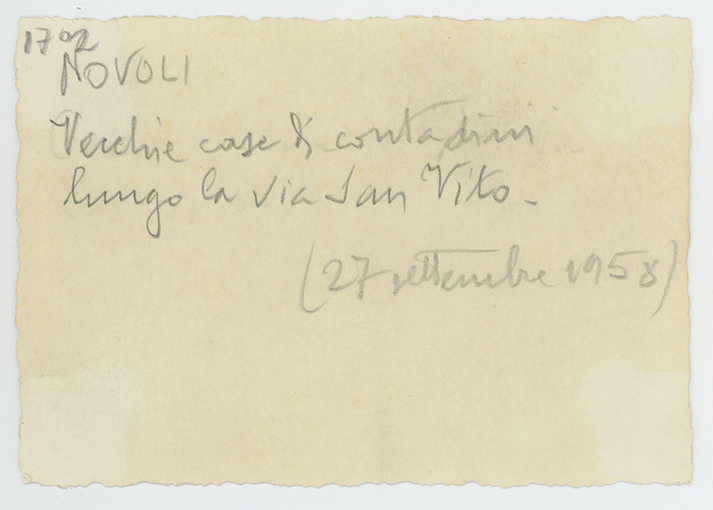 1792
NOVOLI
Vecchie case di contadini
lungo la via San Vito -
(27 settembre 1958)